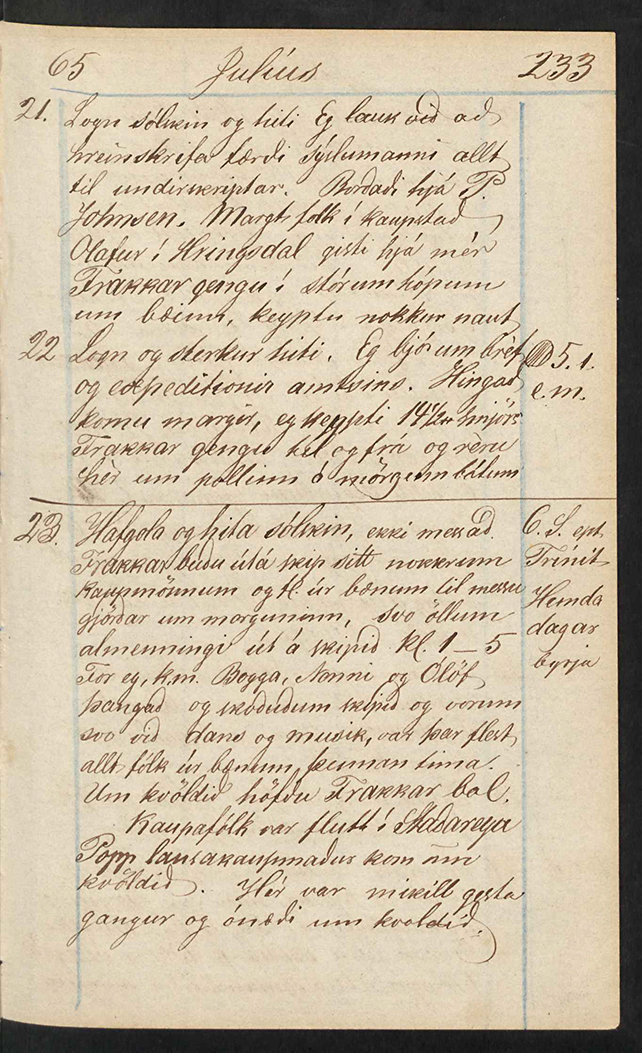 65 Julíus 233
21. Logn sólskin og hiti Eg lauk við að
hreinskrifa færði sýslumanni allt
til undirskriptar. Borðaði hjá P.
Johnsen. Margt fólk í kaupstað
Olafur í Hringsdal gisti hjá mér
Frakkar gengu í stórum hópum
um bæinn, keyptu nokkur naut
22 Logn og sterkur hiti. Eg bjó um bréf 5. 1.
og expeditionir amtsins. Hingað e.m.
komu margir, eg keypti 14 1/2 smjörs
Frakkar gengu til og frá og réru
hér um pollinn á mörgum bátum
23. Hafgola og hita sólskin, ekki messað. 6. S. ept
Frakkar buðu útá skip sitt nokkrum Trínit
kaupmönnum og fl. úr bænum til messu
gjörðar um morguninn, svo öllum Hunda
almenningi út á skipið kl. 1–5 dagar
For eg, k.m. Bogga, Nonni og Ólöf byrja
þangað og skoðuðum skipið og vorum
svo við dans og musik, var þar flest
allt fólk úr bænum þennan tíma.
Um kvöldið höfðu Frakkar bal.
Kaupafólk var flutt í Staðareya
Popp lausakaupmaður kom um
kvöldið. Hér var mikill gesta
gangur og ónæði um kvoldið.